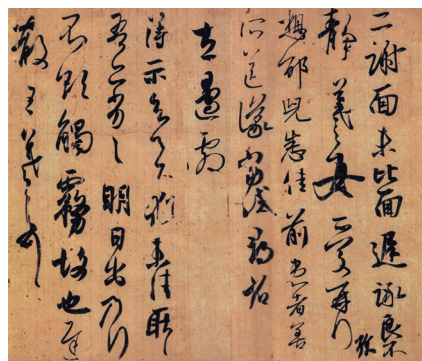 二謝面未比面遲詠良不
靜羲之女愛再拜
珍
想邵兒悉佳前患者善
所送議當試尋省
左邊劇
得示知足下猶未佳耿耿
吾亦劣劣明日出乃行
不欲觸霧故也遲
散王羲之頓首